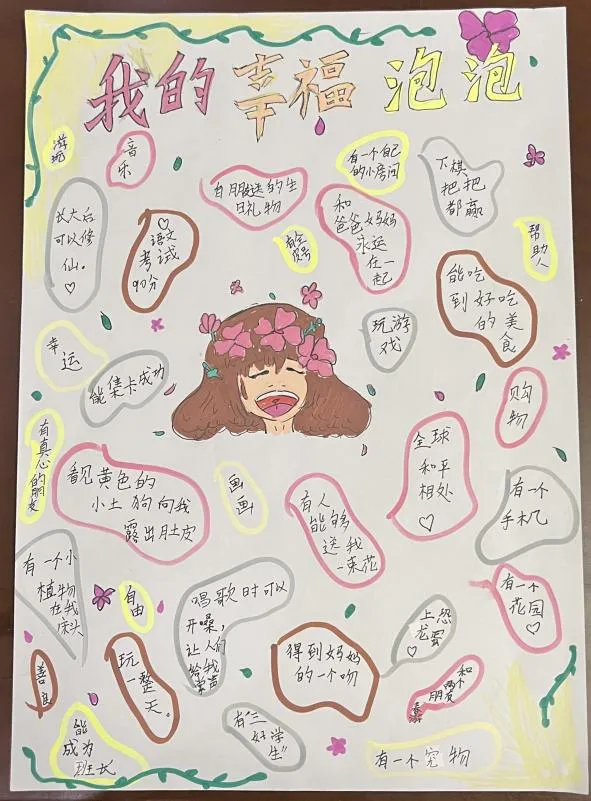 我的幸福泡泡
游玩
音乐
白朋友送的生
日礼物
有一个自己
的小房间
下棋
把把
都赢
长大后
可以修
仙。
语文
考试
90分
有全
员号
和
爸爸妈妈
永远
在一
起
帮助人
能吃
到好吃
的美
食
幸
运
能集卡成功
玩游
戏
购
物
有真心的朋友
看见黄色的
小土狗向我
露出肚皮
画
画
有人
能够
送我
一束花
全球
和平
相处
有一个
手机
有一个小
植物
在我
床头
自
由
唱歌时可以
开嗓,
让人们
给我
掌声
上恐
龙蛋
有一个
花园
善良
玩
一整
天。
得到妈妈
的一个吻
能
成为
班长
有“三
好学
生”
有一个宠物